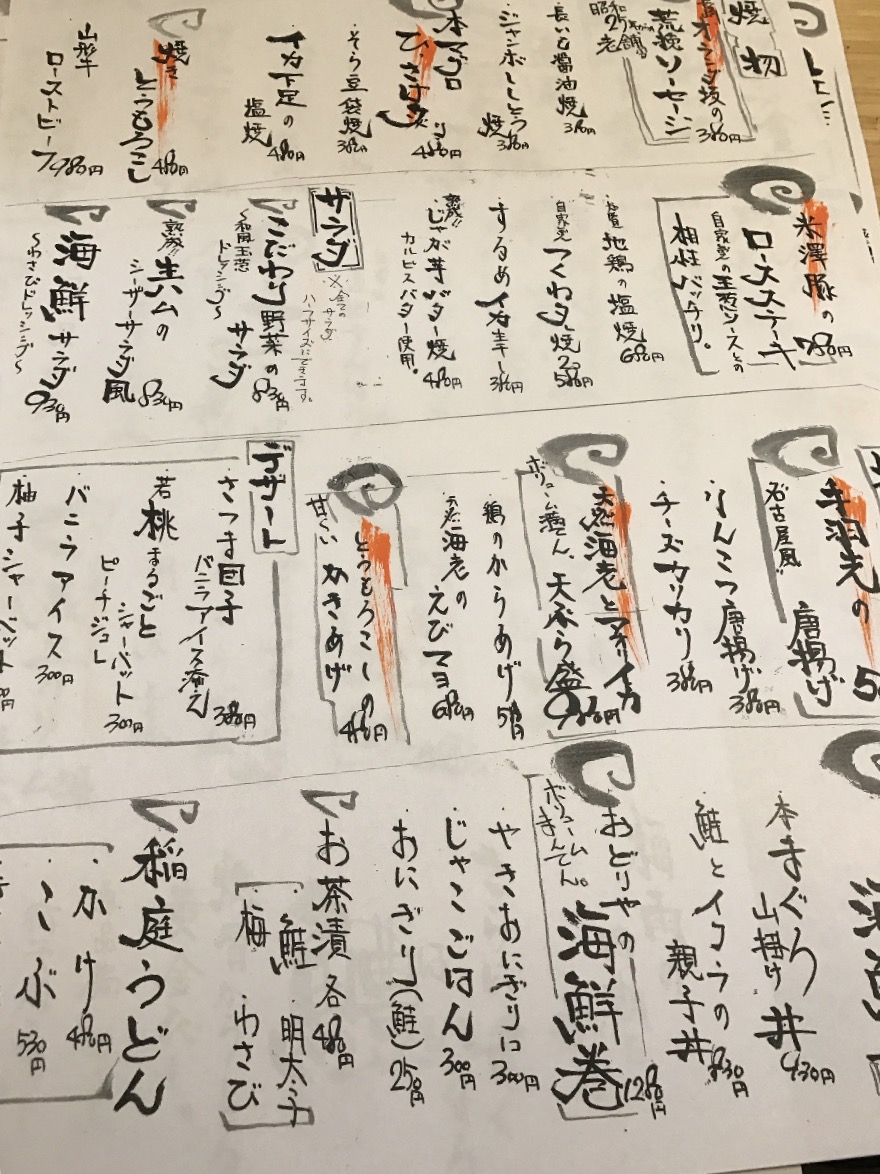 焼物
オランダ坂の
荒挽ソーセージ
380円
昭和25年
老舗
長いも醤油焼
380円
ジャンボししとう
焼
380円
本マグロ
ひ
480円
そら豆袋焼
380円
イカ下足の
塩焼
480円
焼き
とうもろこし
480円
山形牛
ローストビーフ
980円
米澤豚の
ロースステーキ
780円
自家製の玉葱ソースとの
相性バッチリ。
地鶏の塩焼
680円
自家製
つくね焼
580円
するめイカ
380円
熟成!!
じゃが芋バター焼
カルピスバター使用。
480円
サラダ
※全ての
サラダ
ハーフサイズにできます。
こだわり野菜の
サラダ
830円
〜和風玉葱
ドレッシング〜
熟成!!
生ハムの
シーザーサラダ風
830円
海鮮サラダ
930円
〜わさびドレッシング〜
手羽先の
唐揚げ
名古屋風!!
なんこつ唐揚げ
380円
チーズカリカリ
380円
天然海老とアオリイカ
ボリューム満てん、天ぷら盛
980円
鶏のからあげ
天然海老の
えびマヨ
680円
とうもろこしの
甘〜い
かきあげ
480円
デザート
さつま団子
バニラアイス添え
380円
若桃まるごと
シャーベット
ピーチジュレ
300円
バニラアイス
300円
柚子シャーベット
本まぐろ
山掛け
丼
930円
鮭とイクラの
親子丼
830円
おどりやの
海鮮巻
1280円
ボリューム
まんてん。
やきおにぎり
300円
じゃこごはん
300円
おにぎり(鮭)
250円
お茶漬
各480円
鮭
明太子
梅
わさび
稲庭うどん
かけ
480円
こぶ
530円